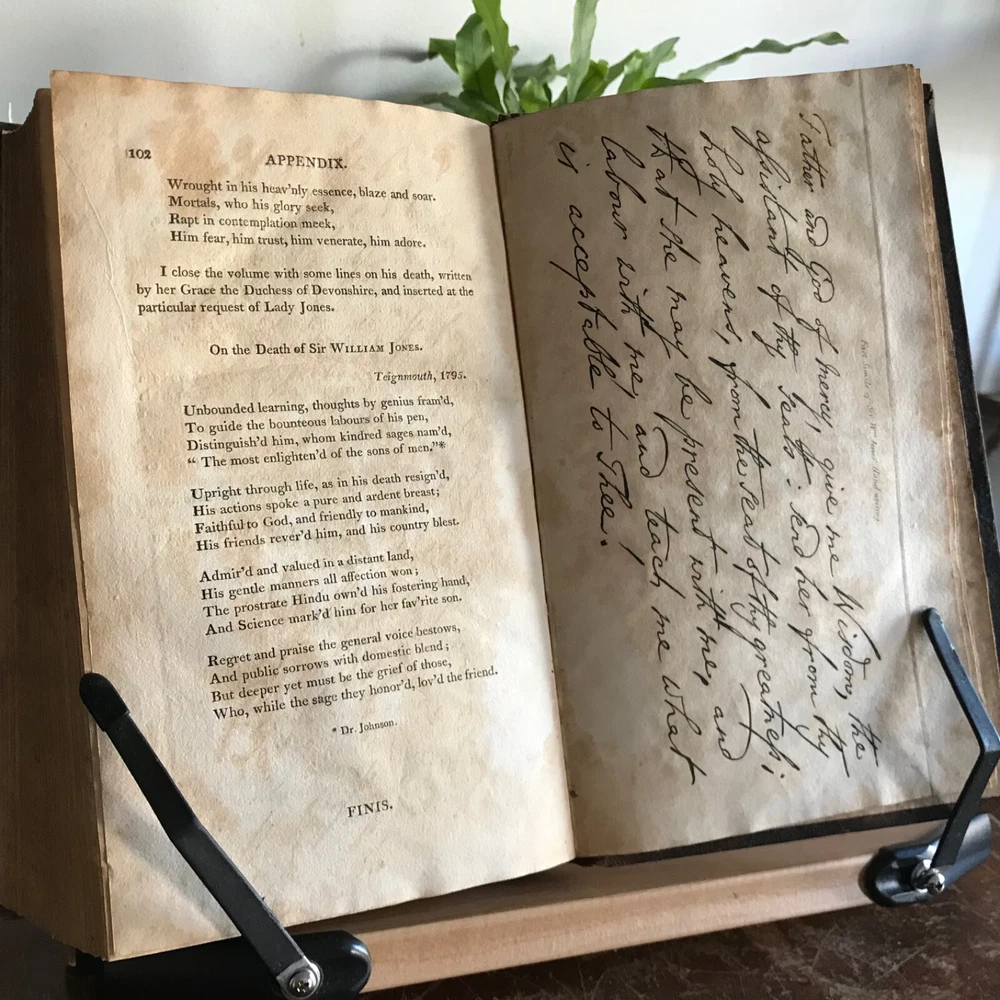 102
APPENDIX.
Wrought in his heav'nly essence, blaze and soar.
Mortals, who his glory seek,
Rapt in contemplation meek,
Him fear, him trust, him venerate, him adore.
I close the volume with some lines on his death, written
by her Grace the Duchess of Devonshire, and inserted at the
particular request of Lady Jones.
On the Death of Sir WILLIAM JONES.
Teignmouth, 1795.
Unbounded learning, thoughts by genius fram'd,
To guide the bounteous labours of his pen,
Distinguish'd him, whom kindred sages nam'd,
“ The most enlighten'd of the sons of men.”*
Upright through life, as in his death resign'd,
His actions spoke a pure and ardent breast;
Faithful to God, and friendly to mankind,
His friends rever'd him, and his country blest.
Admir'd and valued in a distant land,
His gentle manners all affection won;
The prostrate Hindu own'd his fostering hand,
And Science mark'd him for her fav'rite son.
Regret and praise the general voice bestows,
And public sorrows with domestic blend;
But deeper yet must be the grief of those,
Who, while the sage they honor'd, lov'd the friend.
* Dr. Johnson.
FINIS.
Father and God of mercy, give me Wisdom, the
aſsistant of thy Seats: send her from thy
holy heavens, from the seat of thy greatneſs;
that she may be present with me, and
labour with me, and teach me what
is acceptable to Thee!